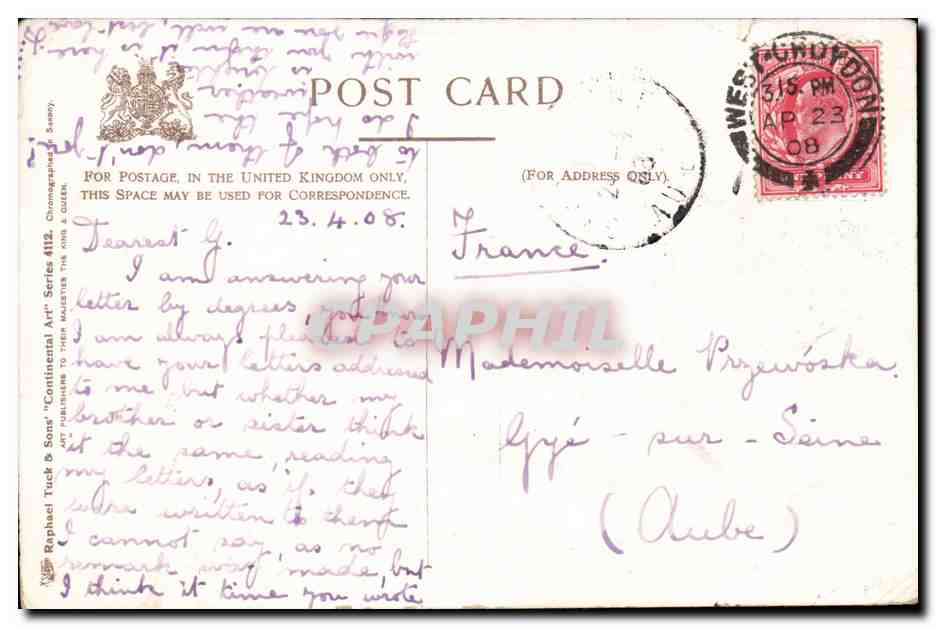 POST CARD
FOR POSTAGE, IN THE UNITED KINGDOM ONLY,
THIS SPACE MAY BE USED FOR CORRESPONDENCE.
(FOR ADDRESS ONLY).
WEST-CROYDON
3.15. PM
AP 23
08
23.4.08.
Dearest G.
I am answering your
letter by degrees, you know
I am always pleased to
have your letters addressed
to me but whether my
brother or sister think
it the same, reading
my letters, as if they
were written to them
I cannot say, as no
remark was made, but
I think it time you wrote
to both of them, don't you?
I do hope the
weather
is
with you
France.
Mademoiselle Przewóska.
Gyé - sur - Seine
(Aube)
Raphael Tuck & Sons' "Continental Art" Series 4112. Chromographed in Saxony.
ART PUBLISHERS TO THEIR MAJESTIES THE KING & QUEEN.
CPAPHIL